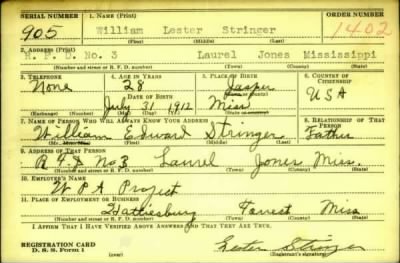 SERIAL NUMBER 1. NAME (Print) ORDER NUMBER
905 William Lester Stringer 1402
(First) (Middle) (Last)
2. ADDRESS (Print)
R.F.D. No. 3 Laurel Jones Mississippi
(Number and street or R. F. D. number) (Town) (County) (State)
3. TELEPHONE 4. AGE IN YEARS 5. PLACE OF BIRTH 6. COUNTRY OF CITIZENSHIP
None 28 Jasper
DATE OF BIRTH (Town or county) USA
July 31 1912 Miss
(Exchange) (Number) (Mo.) (Day) (Yr.) (State or country)
7. NAME OF PERSON WHO WILL ALWAYS KNOW YOUR ADDRESS 8. RELATIONSHIP OF THAT PERSON
William Edward Stringer Father
(Mr., Mrs., Miss) (First) (Middle) (Last)
9. ADDRESS OF THAT PERSON
R.F.D. No 3 Laurel Jones Miss.
(Number and street or R. F. D. number) (Town) (County) (State)
10. EMPLOYER'S NAME
W P A Project
11. PLACE OF EMPLOYMENT OR BUSINESS
Hattiesburg Forrest Miss
(Number and street or R. F. D. number) (Town) (County) (State)
I AFFIRM THAT I HAVE VERIFIED ABOVE ANSWERS AND THAT THEY ARE TRUE.
REGISTRATION CARD Lester Stringer
D. S. S. Form 1 (over) (Registrant's signature)